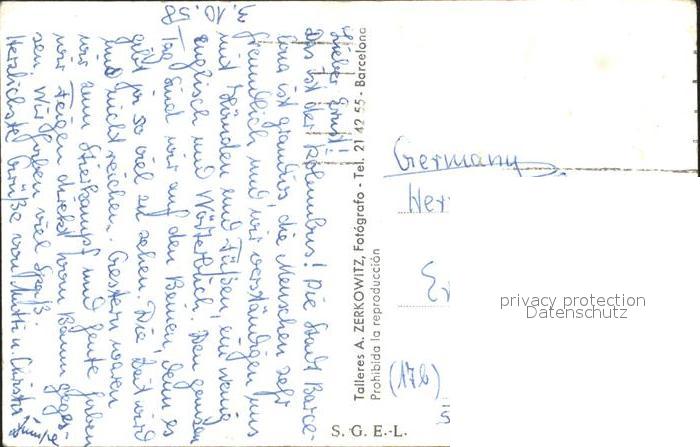 3. 10. 58
Lieber Ernst!
Das ist der Kolumbus! Die Stadt Barce-
lona ist grandios, die Menschen sehr
freundlich und wir verständigen uns
mit Händen und Füßen, ein wenig
englisch und Wörterbuch. Den ganzen
Tag sind wir auf den Beinen, denn es
gibt ja so viel zu sehen. Die Zeit wird
uns nicht reichen. Gestern waren
wir zum Stierkampf und heute haben
wir Feigen direkt vom Baum geges-
sen. Wir haben viel Spaß.
Herzlichste Grüße von Mutti u Christa
Talleres A. ZERKOWITZ, Fotógrafo - Tel. 21 42 55 - Barcelona
Prohibida la reproducción
Germany
Her
Er
privacy protection
Datenschutz
(17b)
S. G. E.-L.